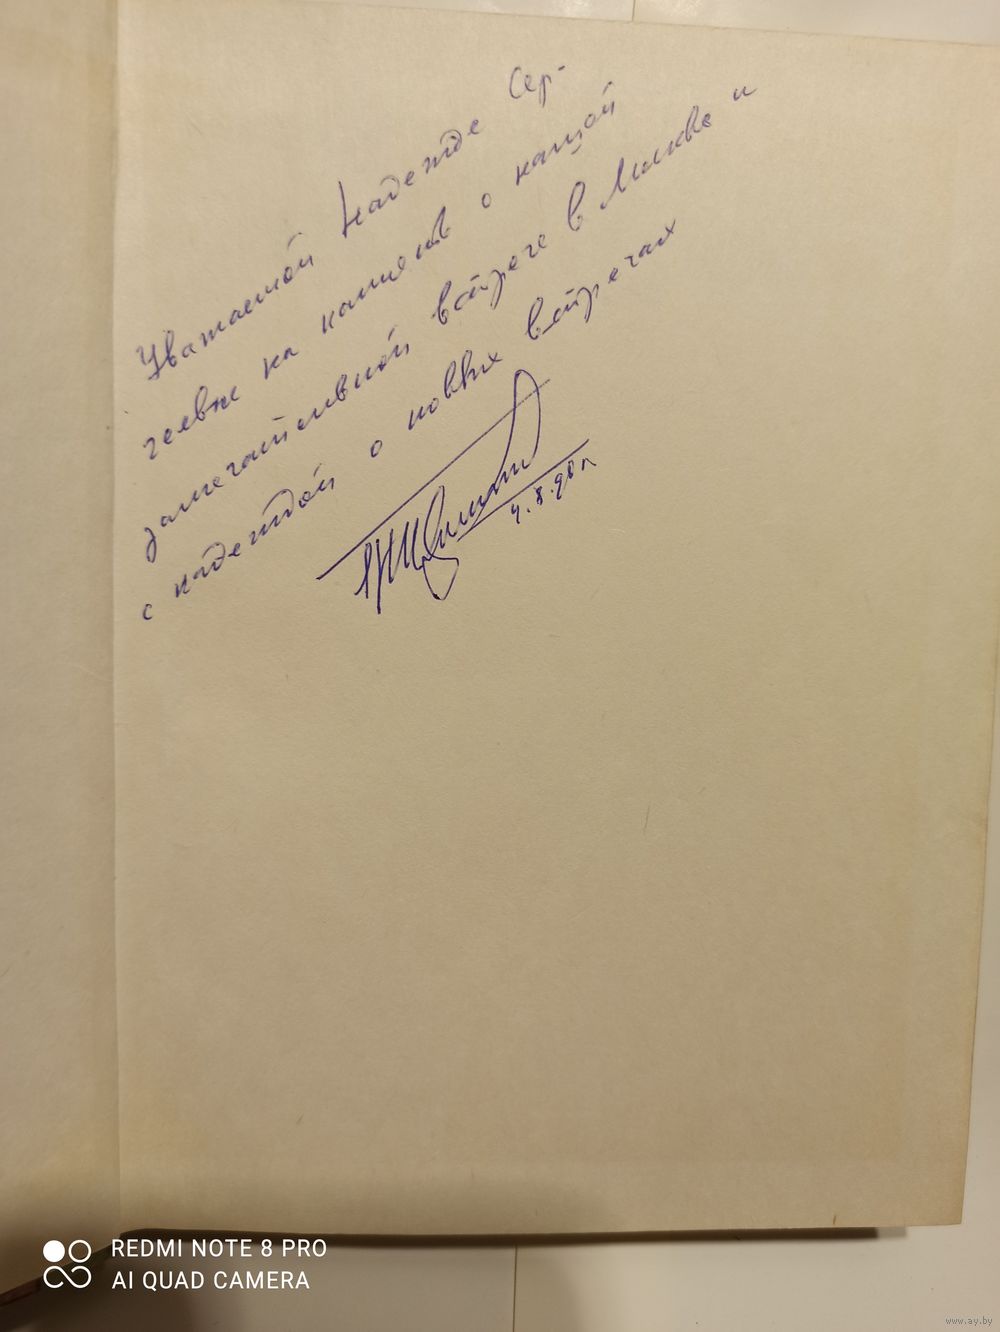 Уважаемой Надежде Сер-
геевне на память о нашей
замечательной встрече в Москве и
с надеждой о новых встречах
4.8.90 г
REDMI NOTE 8 PRO
AI QUAD CAMERA
www.ay.by